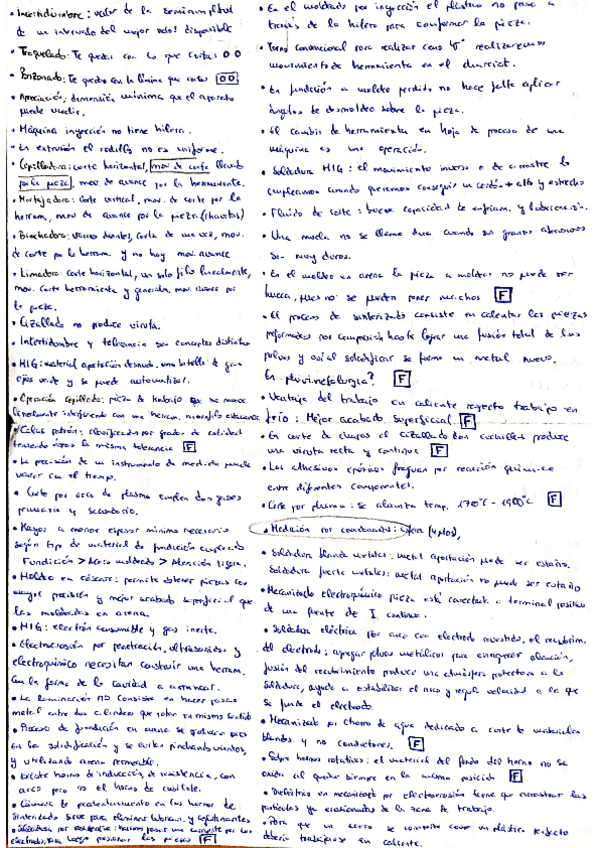 • Incertidumbre: valor de la semiamplitud
de un intervalo del mejor valor disponible
• Troquelado: Te quedas con lo que cortas
• Punzonado: Te quedas con la lámina que cortas
• Apreciación: dimensión mínima que el aparato
puede medir.
• Máquina inyección no tiene hilera.
• En extrusión el rodillo no es uniforme.
• Cepilladora: corte horizontal, mov. de corte llevado
por la pieza, mov. de avance por la herramienta.
• Mortajadora: corte vertical, mov. de corte por la
herram, mov de avance por la pieza (chavetas)
• Brochadora: varios dientes, corta de una vez, mov.
de corte por la herram. y no hay mov. avance
• Limadora: corte horizontal, un solo filo linealmente,
mov. corte herramienta y mov. avance por
la pieza.
• Cizallado no produce viruta.
• Incertidumbre y tolerancia son conceptos distintos
• MIG: material aportación desnudo, una botella de gas
y se puede automatizar.
• Operación cepillado: pieza de trabajo que se mueve
linealmente con una herram. monofilo estacionaria
• Calas patrón: clasificados por grados de calidad
teniendo éstos la misma tolerancia F
• La precisión de un instrumento de medida puede
variar con el tiempo.
• Corte por arco de plasma emplea dos gases
primario y secundario.
• Mayor a menor espesor mínimo necesario
según tipo de material de fundición empleado
Fundición > Acero moldeado > Aleación ligera.
• Moldeo en cáscara: permite obtener piezas con
mayor precisión y mejor acabado superficial que
las moldeadas en arena.
• MIG: electrodo consumible y gas inerte.
• Electroerosión por penetración, ultrasonidos y
electroquímico necesitan construir una herram.
con la forma de la cavidad a arrancar.
• La laminación no consiste en hacer pasar
metal entre dos cilindros que rotan en mismo sentido
• Proceso de fundición en arena se producen gases
en la solidificación y se evitan pinchando vientos,
y utilizando arena permeable.
• Existe horno de inducción, de resistencia, con
arco pero no el horno de cubilote.
• Cámara de precalentamiento en los hornos de
sinterizado sirve para eliminar lubrican. y aglutinantes
• Soldadura por resistencia: hacemos pasar una corriente por los
electrodos, para luego presionar las piezas F
• En el moldeo por inyección el plástico no pasa a
través de la hilera para conformar la pieza.
• Torno convencional para realizar cono 45° realizaremos
movimiento de herramienta en el charriot.
• En fundición a moldeo perdido no hace falta aplicar
ángulos de desmoldeo sobre la pieza.
• El cambio de herramienta en hoja de proceso de una
máquina es una operación.
• Soldadura MIG: el movimiento inverso o de arrastre lo
emplearemos cuando queremos conseguir un cordón + alto y estrecho
• Fluido de corte: buena capacidad de enfriam. y lubricación.
• Una muela no se llama dura cuando sus granos abrasivos
son muy duros.
• En el moldeo en arena la pieza a moldear no puede ser
hueca, pues no se pueden poner machos F
• El proceso de sinterizado consiste en calentar las piezas
preformadas por compresión hasta lograr una fusión total de los
polvos y así al solidificar se forma un metal nuevo.
En pulvimetalurgia? F
• Ventaja del trabajo en caliente respecto trabajo en
frío: Mejor acabado superficial F
• En corte de chapas el cizallado con cuchillas produce
una viruta recta y continua F
• Los adhesivos epóxicos fraguan por reacción química
entre diferentes componentes.
• Corte por plasma: se alcanza temp. 1700°C - 1900°C F
• Medición por coordenadas:
• Soldadura blanda metales: metal aportación puede ser estaño.
Soldadura fuerte metales: metal aportación no puede ser estaño
• Mecanizado electroquímico pieza está conectada a terminal positivo
de una fuente de I continua.
• Soldadura eléctrica por arco con electrodo revestido, el recubrim.
del electrodo: agregar polvos metálicos para enriquecer aleación,
fusión del recubrimiento produce una atmósfera protectora a la
soldadura, ayuda a estabilizar el arco y regula velocidad a la que
se funde el electrodo.
• Mecanizado por chorro de agua dedicado a corte de materiales
blandos y no conductores. F
• Sobre hornos rotativos: el material del fondo del horno no se
oxida al quedar siempre en la misma posición F
• Dieléctrico en mecanizado por electroerosión tiene que arrastrar las
partículas ya erosionadas de la zona de trabajo.
• Para que un acero se comporte como un plástico perfecto
debería trabajarse en caliente.